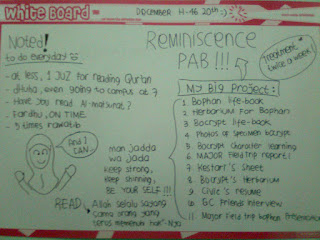 White Board
DECEMBER H-46 20th :)
Noted!
to do everyday!
- at less, 1 JUZ for reading Qur'an
- dhuha, even going to campus at 7
- Have you read Al-ma'tsurat?
- Fardhu, ON TIME
- 5 times rawatib
And I CAN
man jadda
wa jada
keep strong,
keep shinning,
BE YOUR SELF !!!
READ
Allah selalu sayang
sama orang yang
terus memenuhi hak-Nya
REMINISCENCE
PAB !!!
Treatment
twice a week!
My Big Project :
1 Bophan life-book
2 Herbarium For Bophan
3 Bocrypt life-book
4 Photos of specimen bocrypt
5 Bocrypt Character learning
6 MAJOR field trip report
7 Restart's sheet
8 Bocrypt's Herbarium
9 Civic's resume
10 GC Friends interview
11 Major field trip bophan Presentation